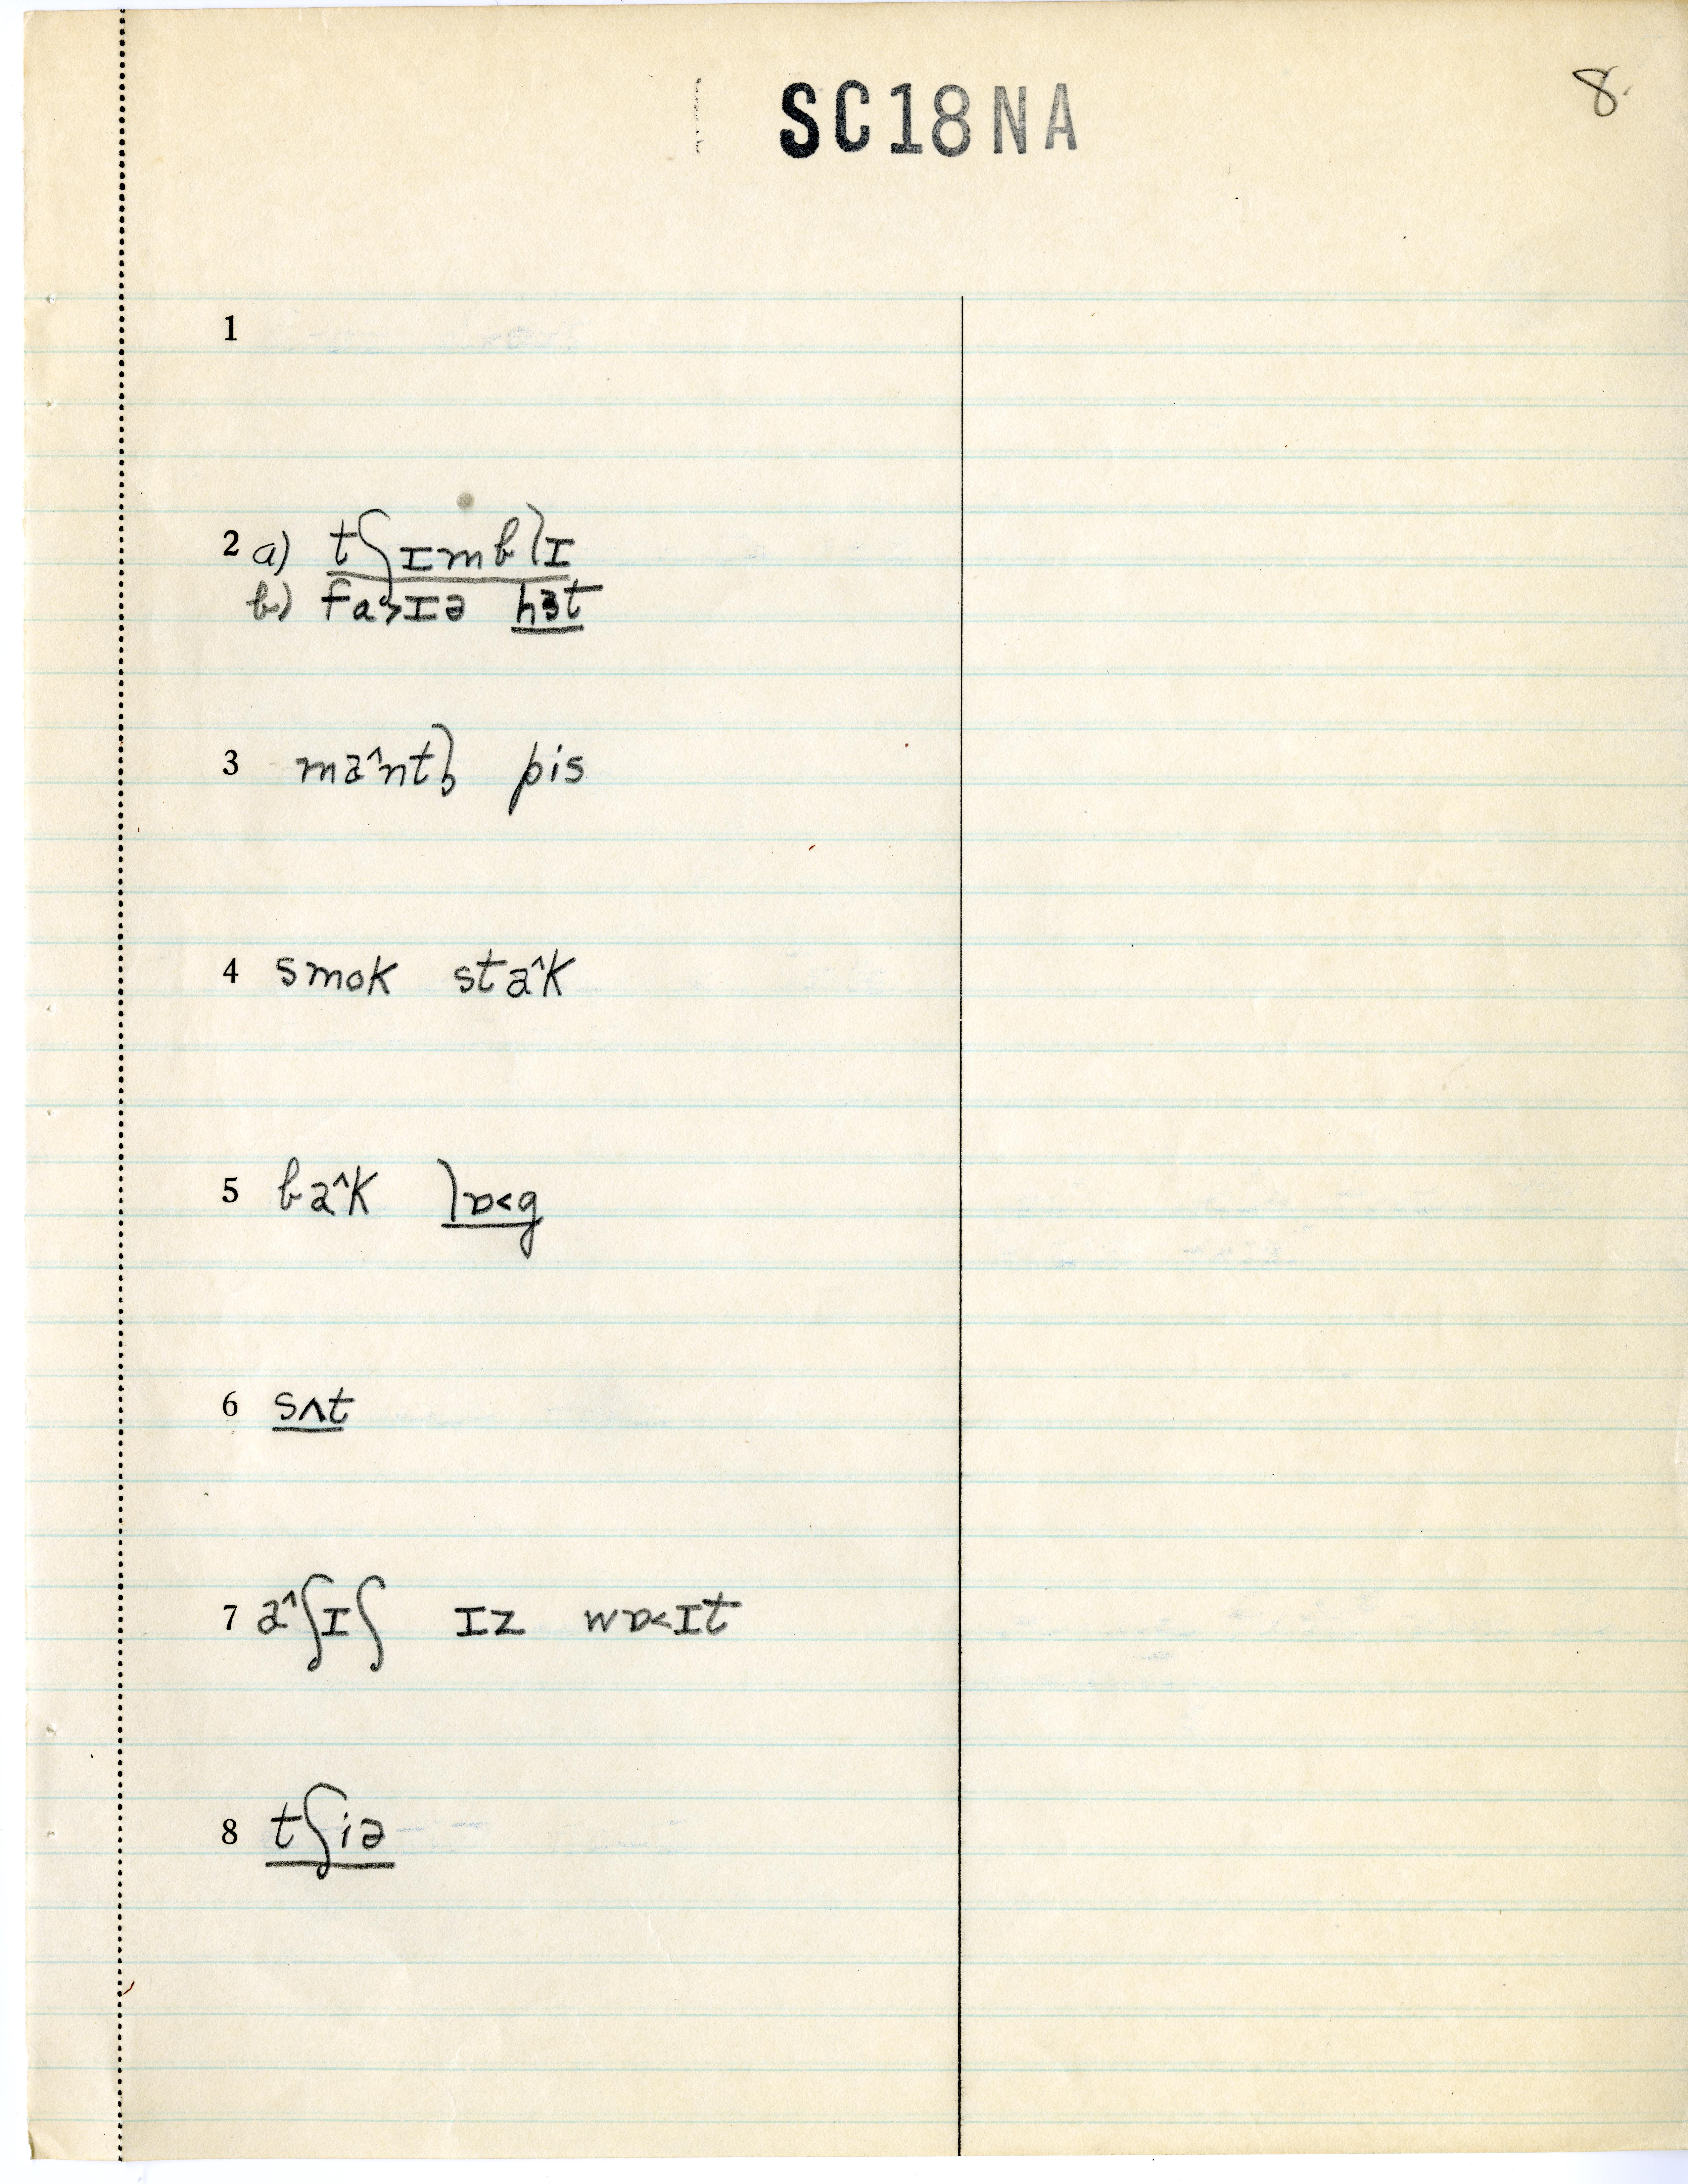 SC18NA
8.
1
2 a) tʃɪmblɪ
b) fa>ɪə hɜt
3 ma^ntl̥ pis
4 smok sta^k
5 ba^k lɒ<g
6 sʌt
7 a^ʃɪʃ ɪz wɒ<ɪt
8 tʃiə